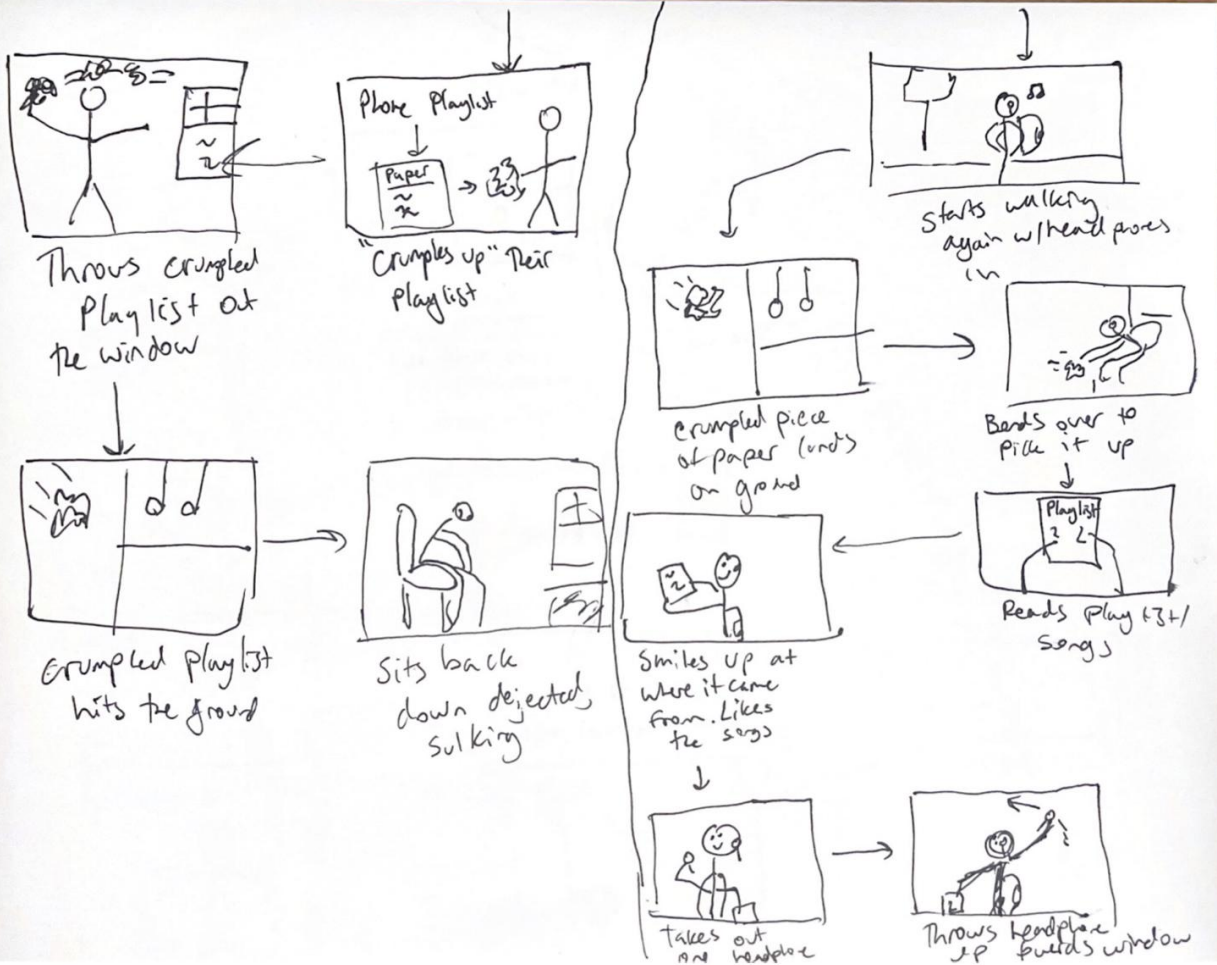 Phone Playlist
Paper
"Crumples up" their
playlist
Throws crumpled
Playlist out
the window
Crumpled playlist
hits the ground
Sits back
down dejected,
sulking
Starts walking
again w/headphones
in
Crumpled piece
of paper lands
on ground
Bends over to
pick it up
Playlist
Reads playlist/
songs
Smiles up at
where it came
from. Likes
the songs
Takes out
one headphone
Throws headphone
up towards window